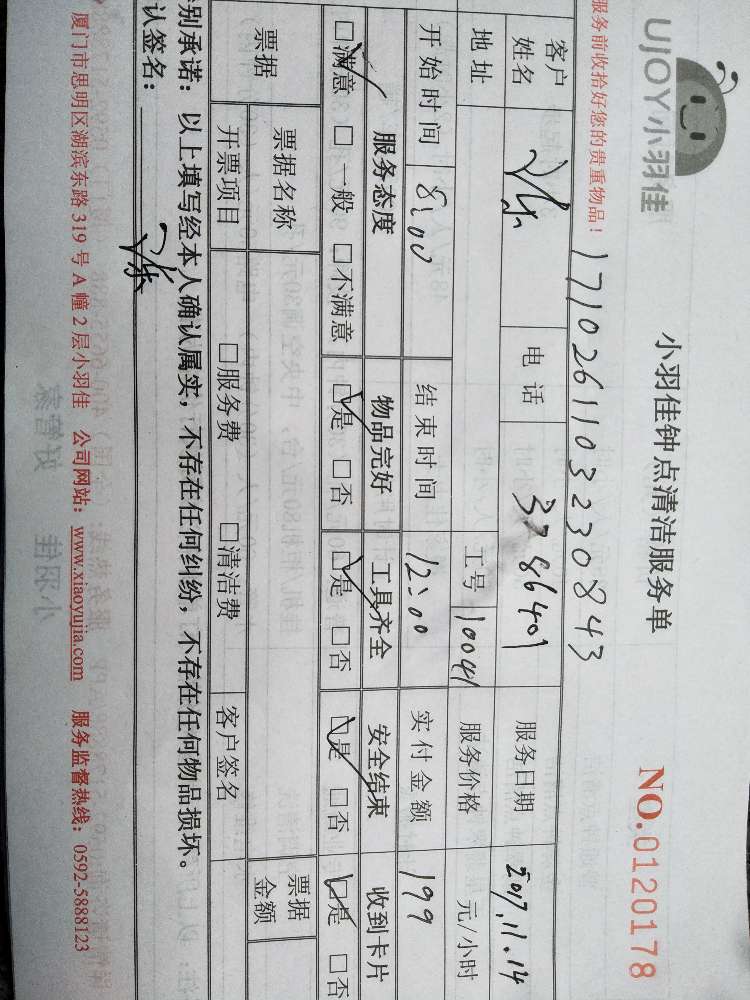 UJOY小羽佳
小羽佳钟点清洁服务单
NO.0120178
服务前收拾好您的贵重物品！
171026110323 0843
客户姓名 电话 3786401 服务日期 2017.11.14
地址 工号 10041 服务价格 元/小时
开始时间 8:00 结束时间 12:00 实付金额 199
服务态度 物品完好 工具齐全 安全结束 收到卡片
□满意 □一般 □不满意 □是 □否 □是 □否 □是 □否 □是 □否
票据 票据名称 票据金额
开票项目 □服务费 □清洁费 客户签名
别承诺：以上填写经本人确认属实，不存在任何纠纷，不存在任何物品损坏。
认签名：
厦门市思明区湖滨东路 319 号 A 幢 2 层小羽佳 公司网站：www.xiaoyujia.com 服务监督热线：0592-5888123